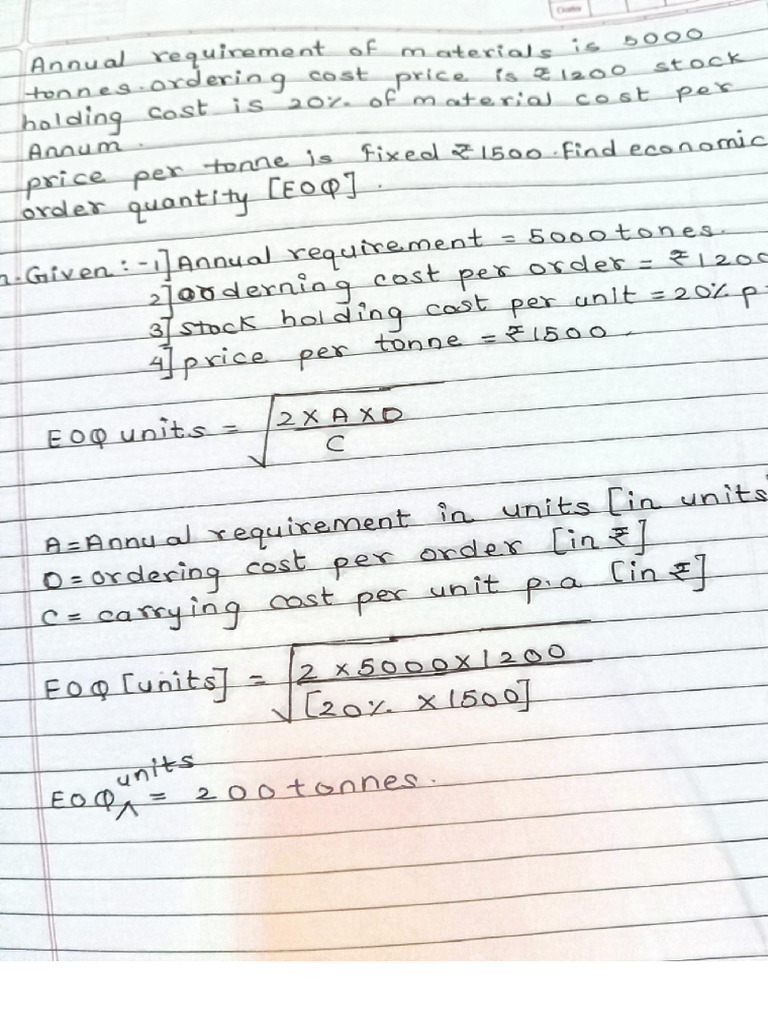 Annual requirement of materials is 5000
tonnes. ordering cost price is ₹1200 stock
holding cost is 20% of material cost per
Annum.
price per tonne is fixed ₹1500. find economic
order quantity [EOQ].
Given:-1] Annual requirement = 5000 tones.
2] orderning cost per order = ₹1200
3] stock holding cost per unit = 20% p
4] price per tonne = ₹1500
EOQ units = √2 X A X O
C
A = Annual requirement in units [in units
O = ordering cost per order [in ₹]
C = carrying cost per unit p.a [in ₹]
EOQ [units] = √2 x 5000 x 1200
[20% x 1500]
EOQ units = 200 tonnes.